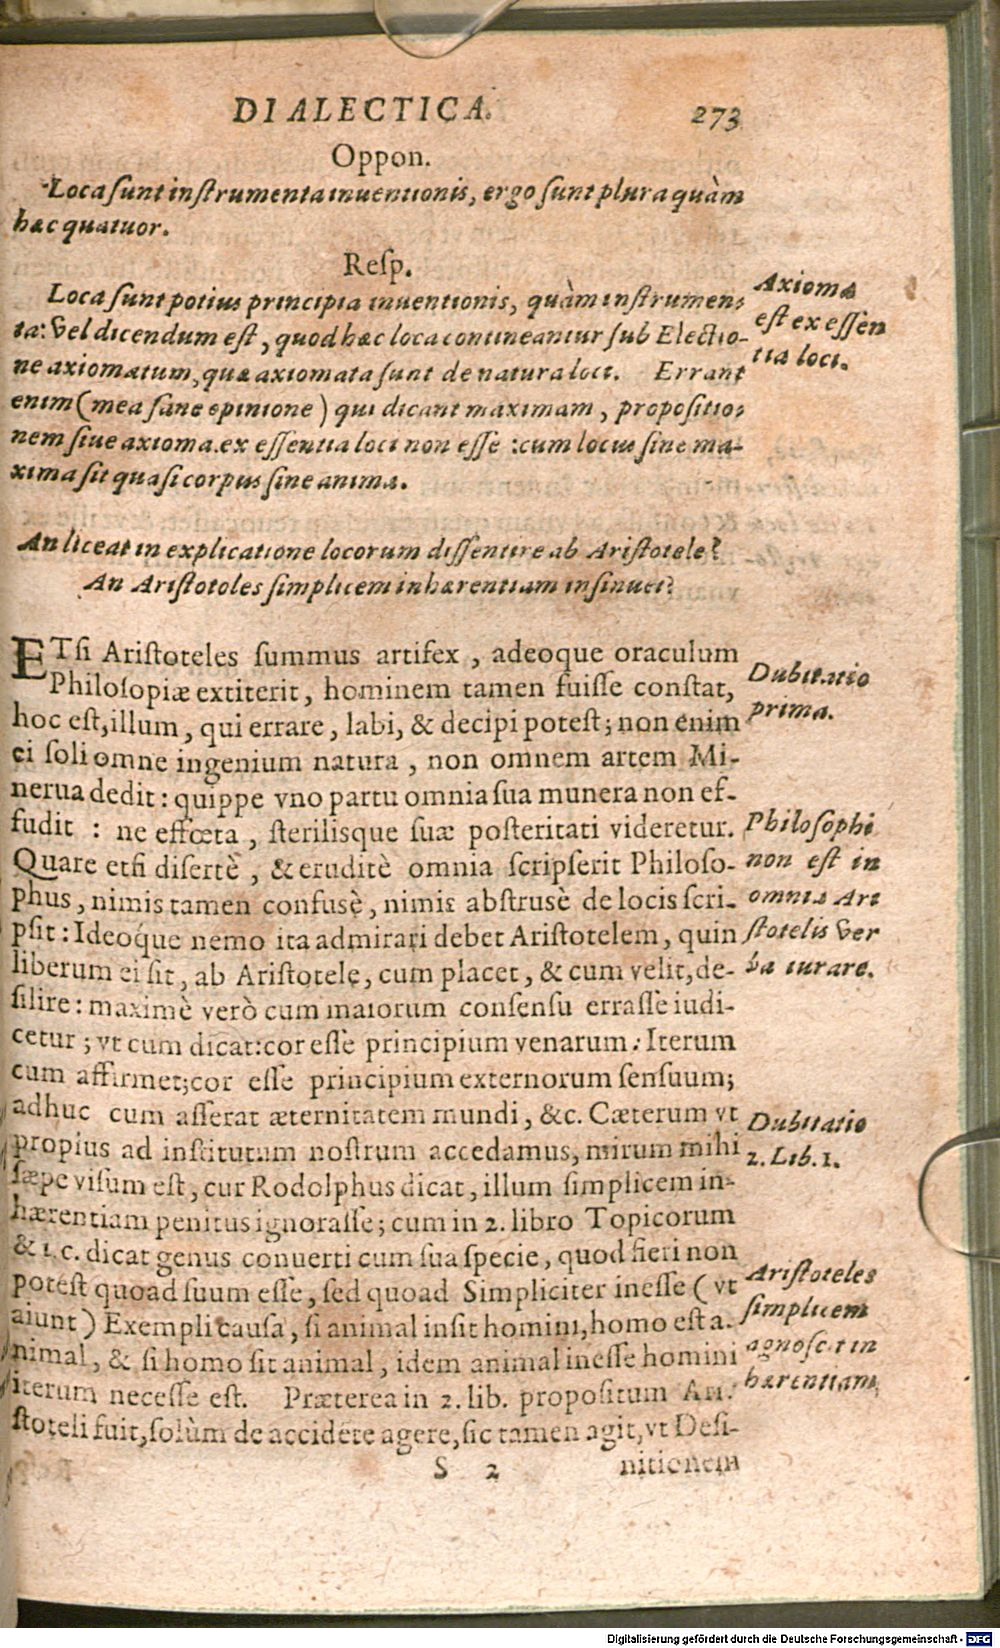 DIALECTICA. 273
Oppon.
Loca sunt instrumenta inuentionis, ergo sunt plura quàm
hæc quatuor.
Resp.
Loca sunt potius principia inuentionis, quàm instrumen-
ta: Vel dicendum est, quod hæc loca contineantur sub Electio-
ne axiomatum, quæ axiomata sunt de natura loci. Errant
enim (mea sane opinione) qui dicant maximam, propositio-
nem siue axioma ex essentia loci non esse: cum locus sine ma-
xima sit quasi corpus sine anima.
Axioma
est ex essen
tia loci.
An liceat in explicatione locorum dissentire ab Aristotele?
An Aristoteles simplicem inhærentiam insinuet?
ETsi Aristoteles summus artifex, adeoque oraculum
Philosopiæ extiterit, hominem tamen fuisse constat,
hoc est, illum, qui errare, labi, & decipi potest; non enim
ei soli omne ingenium natura, non omnem artem Mi-
nerua dedit: quippe vno partu omnia sua munera non ef-
fudit: ne effœta, sterilisque suæ posteritati videretur.
Quare etsi disertè, & eruditè omnia scripserit Philoso-
phus, nimis tamen confusè, nimis abstrusè de locis scri-
psit: Ideoq́ue nemo ita admirari debet Aristotelem, quin
liberum ei sit, ab Aristotele, cum placet, & cum velit, de-
silire: maximè verò cum maiorum consensu errasse iudi-
cetur; vt cum dicat: cor esse principium venarum: Iterum
cum affirmet; cor esse principium externorum sensuum;
adhuc cum asserat æternitatem mundi, &c. Cæterum vt
propius ad institutum nostrum accedamus, mirum mihi
sæpe visum est, cur Rodolphus dicat, illum simplicem in-
hærentiam penitus ignorasse; cum in 2. libro Topicorum
& 1. c. dicat genus conuerti cum sua specie, quod fieri non
potest quoad suum esse, sed quoad Simpliciter inesse (vt
aiunt) Exempli causa, si animal insit homini, homo est a-
nimal, & si homo sit animal, idem animal inesse homini
iterum necesse est. Præterea in 2. lib. propositum Ari-
stoteli fuit, solùm de accidẽte agere, sic tamen agit, vt Desi-
Dubitatio
prima.
Philosophi
non est in
omnia Ari
stotelis Ver
ba iurare.
Dubitatio
2. Lib. 1.
Aristoteles
simplicem
agnoscit in
hærentiam.
S 2 nitionem
Digitalisierung gefördert durch die Deutsche Forschungsgemeinschaft - DFG